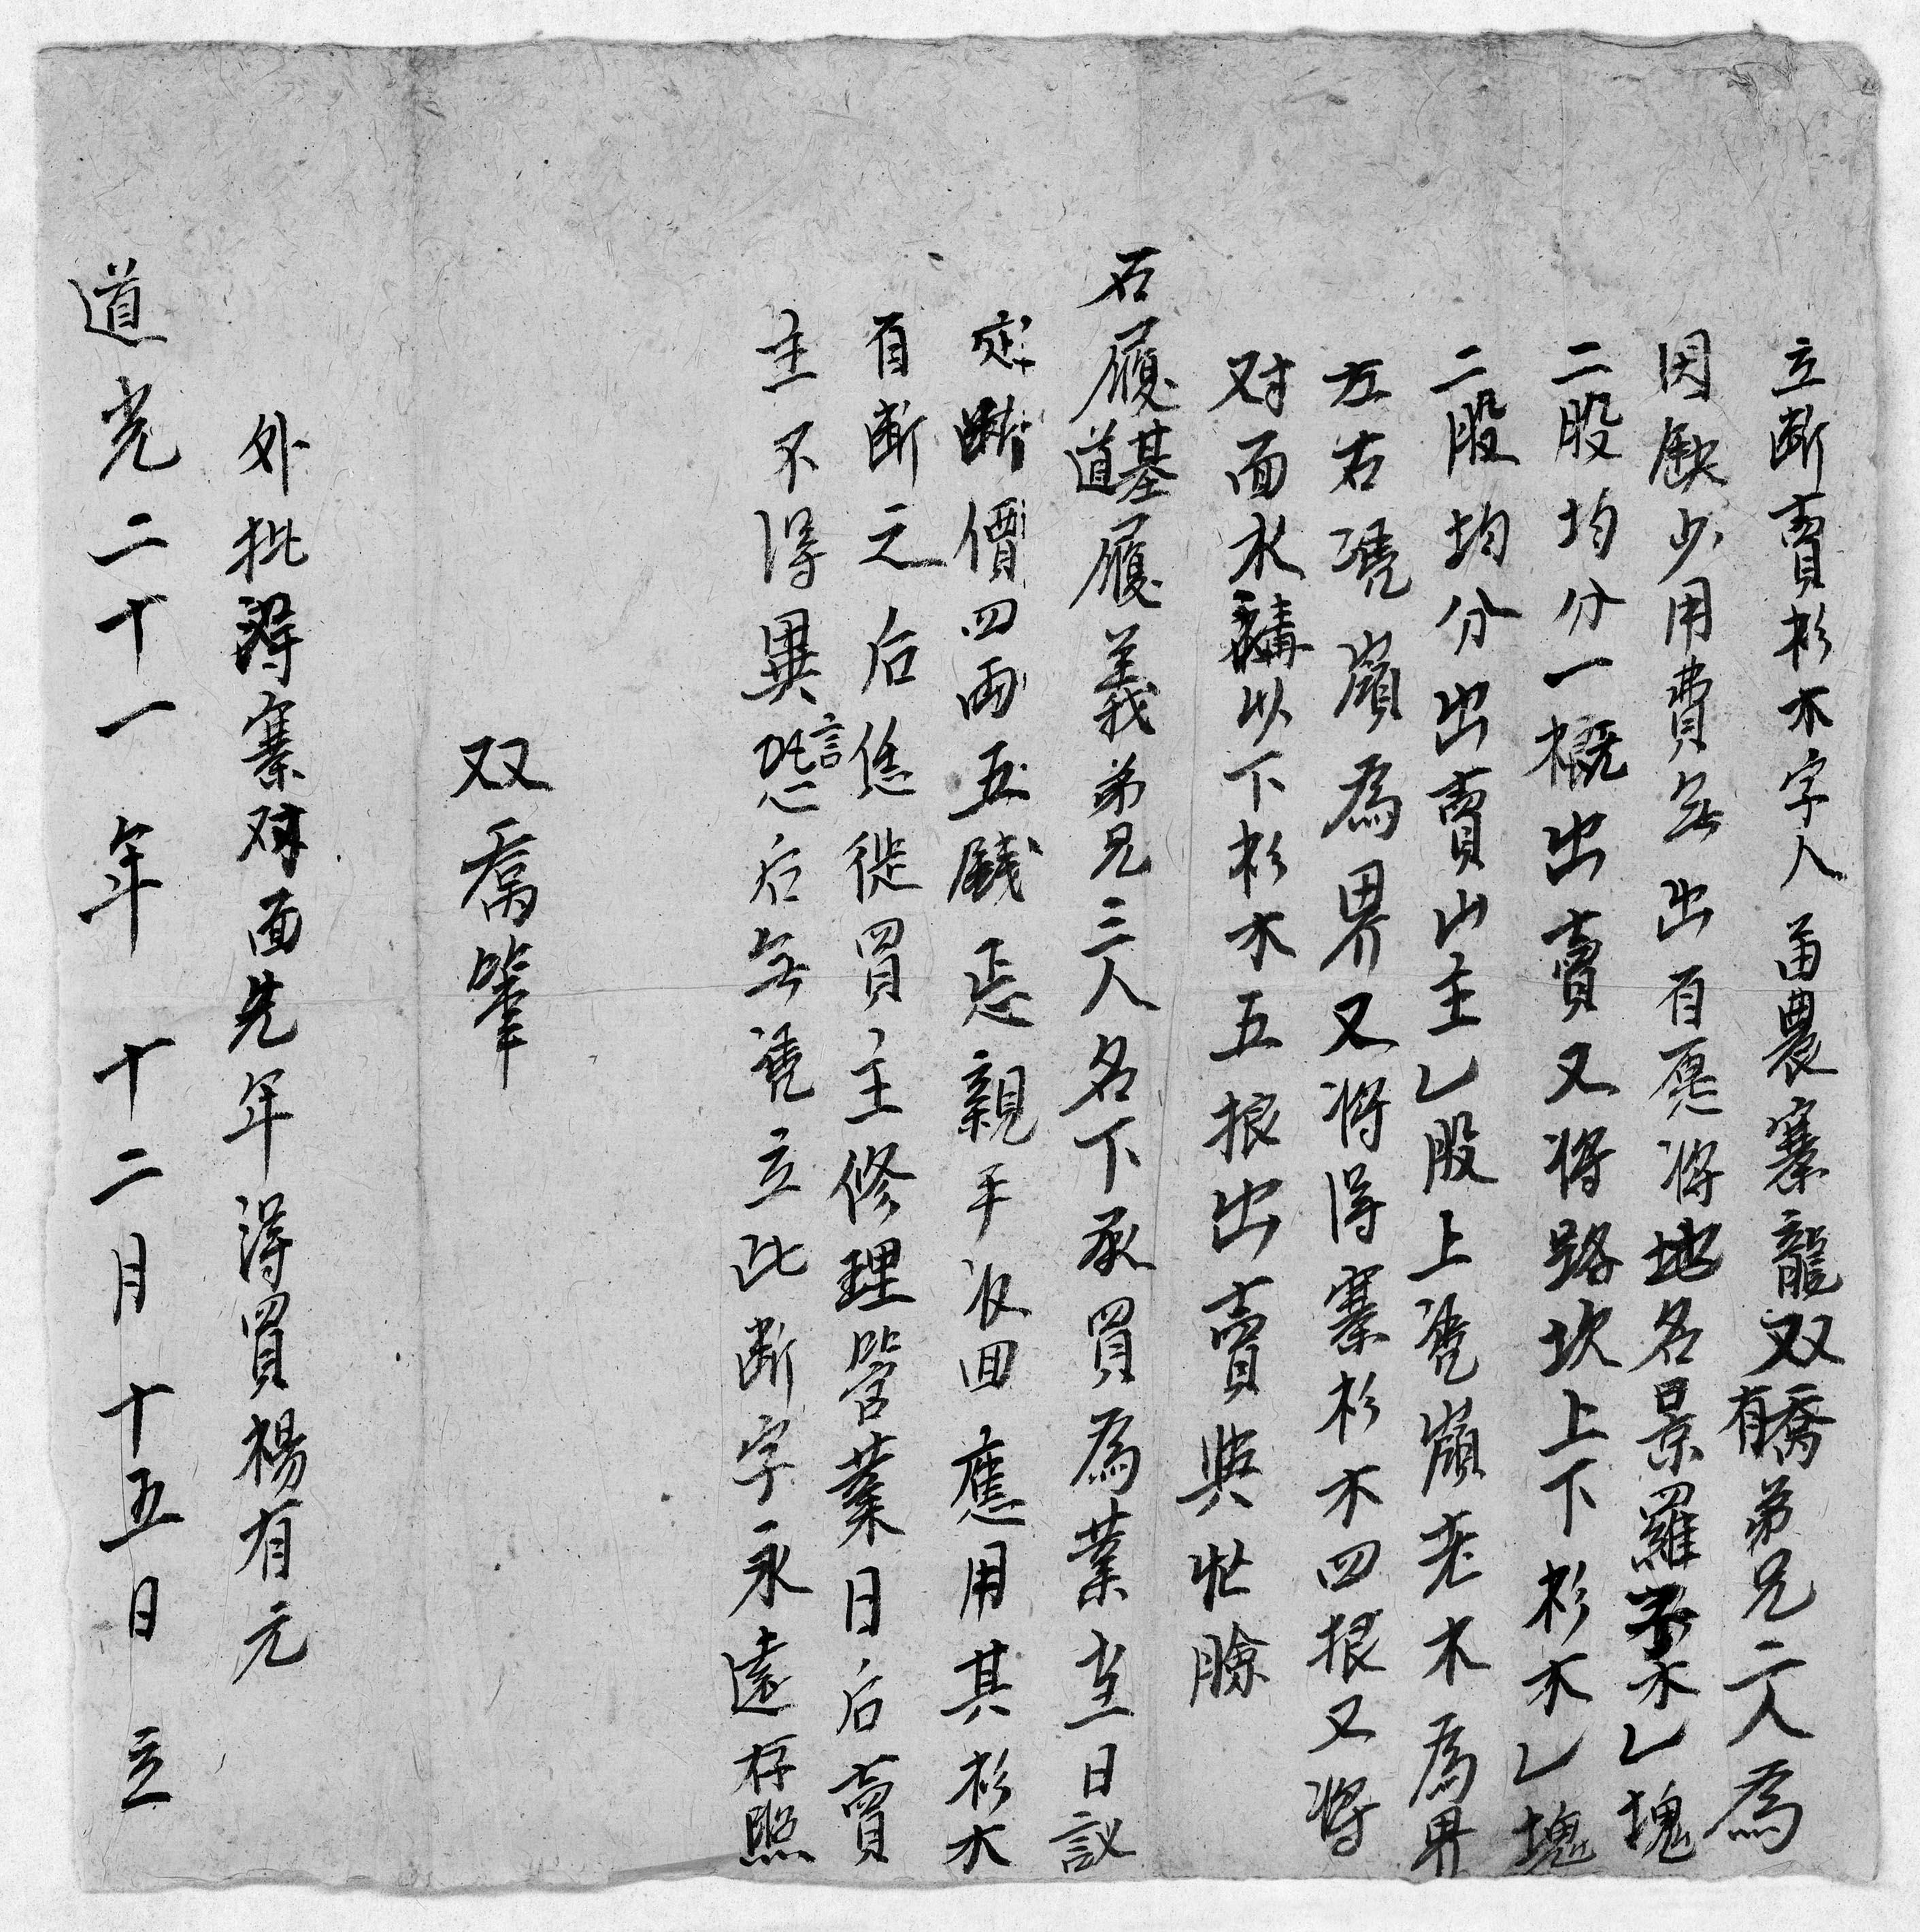 立断賣杉木字人苗農寨龍双有驕弟兄二人為
因缺少用費無出自愿将地名景羅杉木乚塊
二股均分一概出賣又将路坎上下杉木乚塊
二股均分出賣山主乚股上凴嶺老木為界
左右凴嶺為界又将得寨杉木四根又将
对面水構以下杉木五根出賣與忙臉
石履道基履義弟兄三人名下承買為業当日議
定断價四両五錢忘親手收回應用其杉木
自断之后恁從買主修理管業日后賣
主不得異言恐后無凴立此断字永遠存照
双喬筆
外批得寨对面先年得買楊有元
道光二十一年十二月十五日立